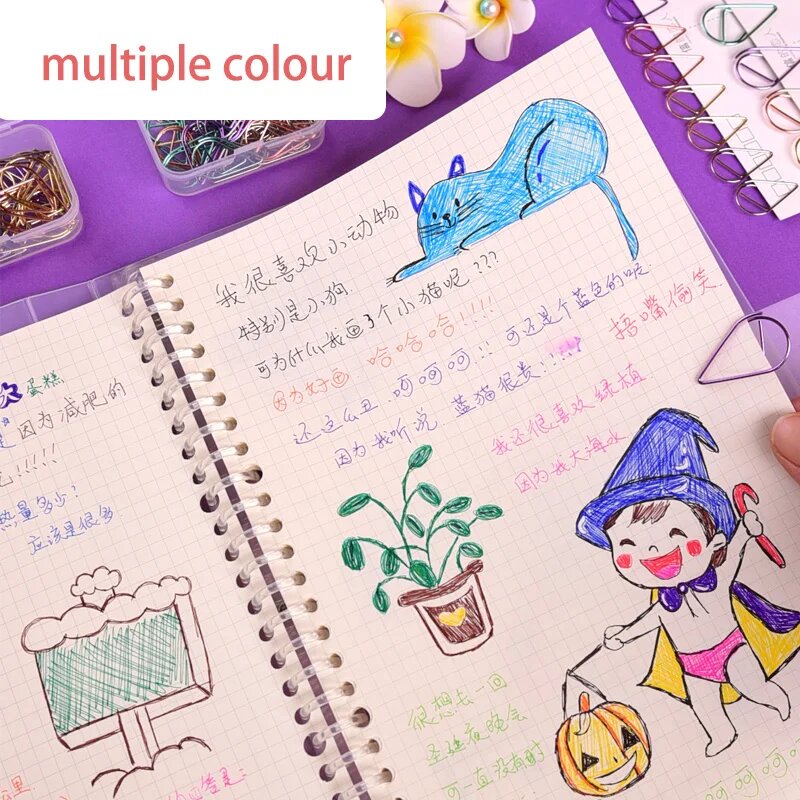 multiple colour
欢 蛋糕
是因为减肥的
!!!!!
热量多少?
应该是很多
公里
我很喜欢小动物
特别是小狗.
可为什么我画了个小猫呢???
因为好画 哈哈哈!!!!
还这么丑.呵呵呵!! 可还是个蓝色的呢.
因为我听说.蓝猫很贵!!!!
捂嘴偷笑.
我还很喜欢绿植
因为我大海水
很想去一回
圣诞夜晚会
可一直没有时
呵呵呵呵